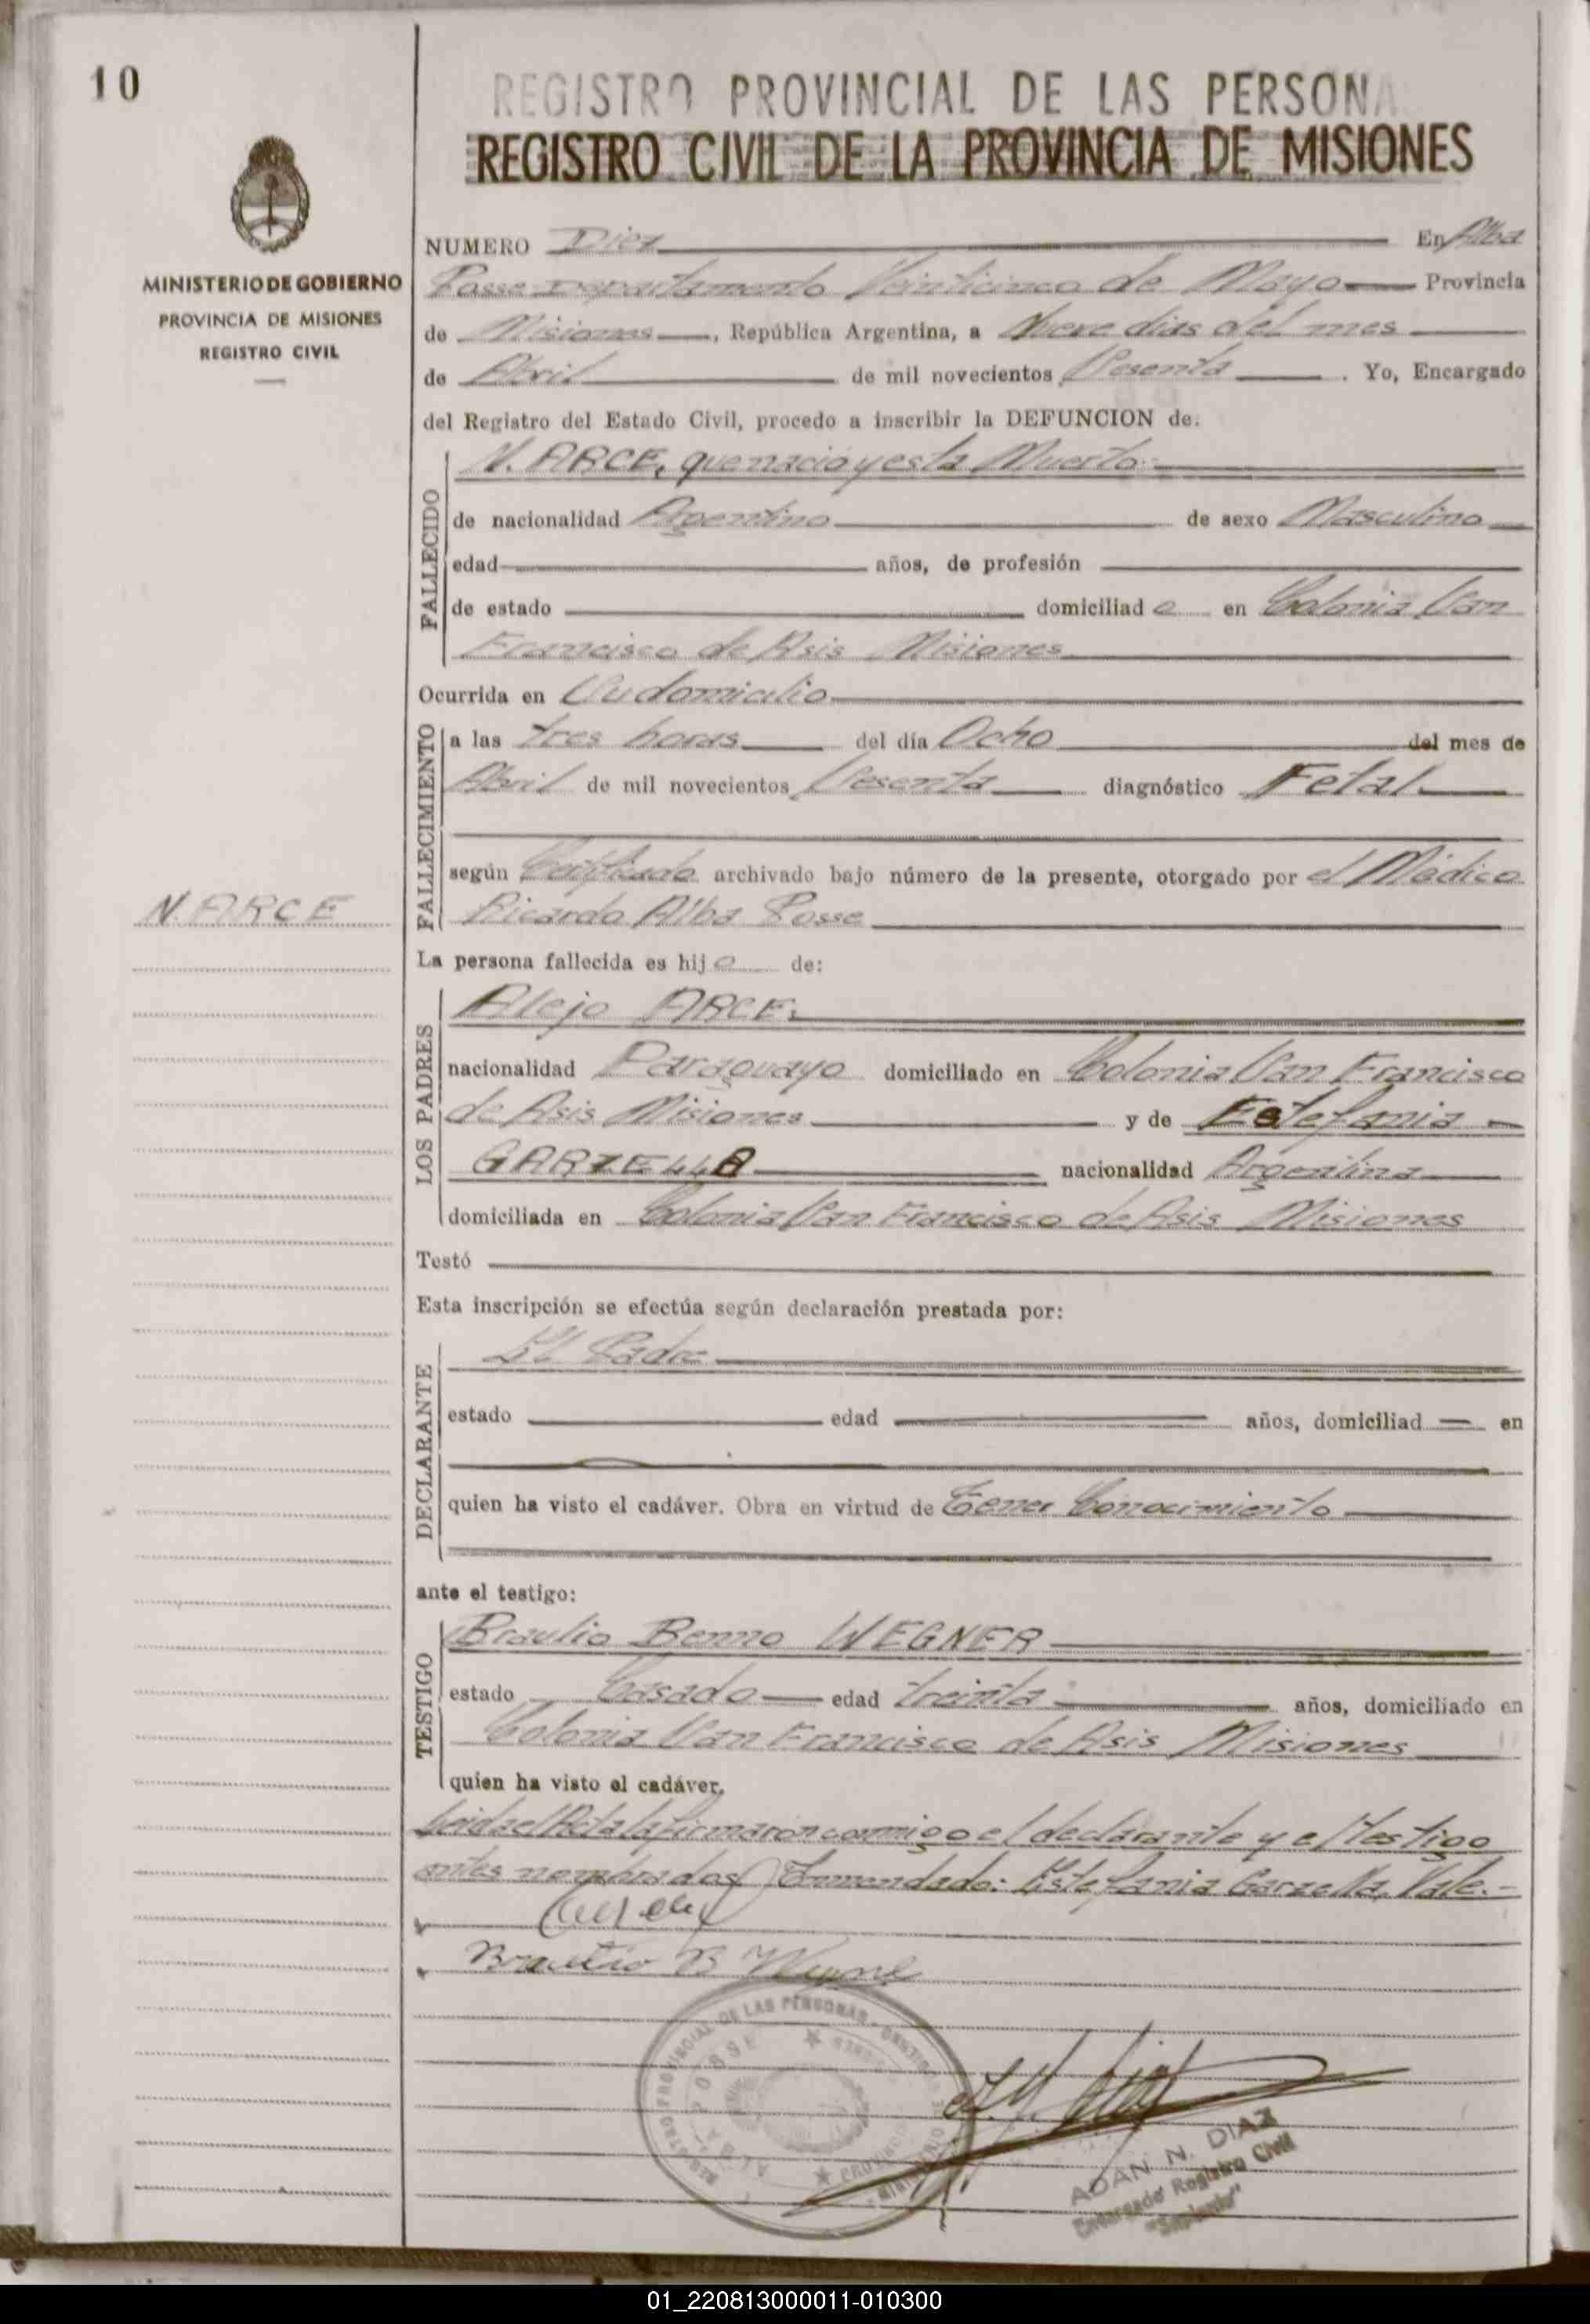 10
REGISTRO PROVINCIAL DE LAS PERSONA
REGISTRO CIVIL DE LA PROVINCIA DE MISIONES
MINISTERIO DE GOBIERNO
PROVINCIA DE MISIONES
REGISTRO CIVIL
NUMERO Diez En Alba
Posse Departamento Veinticinco de Mayo Provincia
de Misiones, República Argentina, a Nueve dias del mes
de Abril de mil novecientos Sesenta. Yo, Encargado
del Registro del Estado Civil, procedo a inscribir la DEFUNCION de:
FALLECIDO
N. ARCE, que nació y esta Muerto.
de nacionalidad Argentino de sexo Masculino
edad años, de profesión
de estado domiciliado en Colonia San
Francisco de Asis Misiones
Ocurrida en Su domicilio
FALLECIMIENTO
a las tres horas del día Ocho del mes de
Abril de mil novecientos Sesenta diagnóstico Fetal
según Certificado archivado bajo número de la presente, otorgado por el Médico
Ricardo Alba Posse
N. ARCE
La persona fallecida es hijo de:
LOS PADRES
Alejo ARCE.
nacionalidad Paraguayo domiciliado en Colonia San Francisco
de Asis Misiones y de Estefania
GARZELLA nacionalidad Argentina
domiciliada en Colonia San Francisco de Asis Misiones
Testó
Esta inscripción se efectúa según declaración prestada por:
DECLARANTE
El Padre
estado edad años, domiciliad en
quien ha visto el cadáver. Obra en virtud de Tener Conocimiento
ante el testigo:
TESTIGO
Braulio Benno WEGNER
estado Casado edad treinta años, domiciliado en
Colonia San Francisco de Asis Misiones
quien ha visto el cadáver.
Leida el Acta la firmaron conmigo el declarante y el testigo
antes nombrados Enmendado: Estefania Garzella, Vale.-
Braulio B Wegner
REGISTRO PROVINCIAL DE LAS PERSONAS
ALBA POSSE
ADAN N. DIAZ
Encargado Registro Civil
"Suplente"
01_220813000011-010300